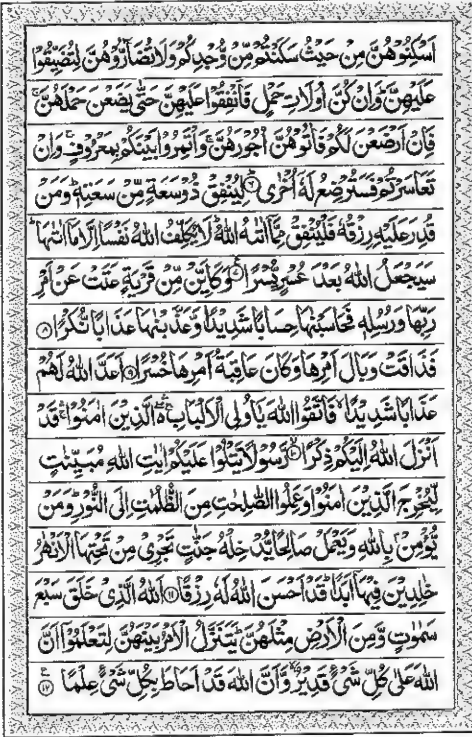 اَسْكِنُوْهُنَّ مِنْ حَيْثُ سَكَنْتُمْ مِّنْ وُّجْدِكُمْ وَلَا تُضَآرُّوْهُنَّ لِتُضَيِّقُوْا
عَلَيْهِنَّ ؕ وَاِنْ كُنَّ اُولَاتِ حَمْلٍ فَاَنْفِقُوْا عَلَيْهِنَّ حَتّٰى يَضَعْنَ حَمْلَهُنَّ ۚ
فَاِنْ اَرْضَعْنَ لَكُمْ فَاٰتُوْهُنَّ اُجُوْرَهُنَّ ۚ وَاْتَمِرُوْا بَيْنَكُمْ بِمَعْرُوْفٍ ۚ وَاِنْ
تَعَاسَرْتُمْ فَسَتُرْضِعُ لَهٗۤ اُخْرٰى ؕ ۶ لِيُنْفِقْ ذُوْ سَعَةٍ مِّنْ سَعَتِهٖ ؕ وَمَنْ
قُدِرَ عَلَيْهِ رِزْقُهٗ فَلْيُنْفِقْ مِمَّاۤ اٰتٰىهُ اللّٰهُ ؕ لَا يُكَلِّفُ اللّٰهُ نَفْسًا اِلَّا مَاۤ اٰتٰىهَا ؕ
سَيَجْعَلُ اللّٰهُ بَعْدَ عُسْرٍ يُّسْرًا ۷ وَكَاَيِّنْ مِّنْ قَرْيَةٍ عَتَتْ عَنْ اَمْرِ
رَبِّهَا وَرُسُلِهٖ فَحَاسَبْنٰهَا حِسَابًا شَدِيْدًا ۙ وَّعَذَّبْنٰهَا عَذَابًا نُّكْرًا ۸
فَذَاقَتْ وَبَالَ اَمْرِهَا وَكَانَ عَاقِبَةُ اَمْرِهَا خُسْرًا ۹ اَعَدَّ اللّٰهُ لَهُمْ
عَذَابًا شَدِيْدًا ۙ فَاتَّقُوا اللّٰهَ يٰۤاُولِى الْاَلْبَابِ ۛ ۚ الَّذِيْنَ اٰمَنُوْا ۛ ؕ قَدْ
اَنْزَلَ اللّٰهُ اِلَيْكُمْ ذِكْرًا ۱۰ رَّسُوْلًا يَّتْلُوْا عَلَيْكُمْ اٰيٰتِ اللّٰهِ مُبَيِّنٰتٍ
لِّيُخْرِجَ الَّذِيْنَ اٰمَنُوْا وَعَمِلُوا الصّٰلِحٰتِ مِنَ الظُّلُمٰتِ اِلَى النُّوْرِ ؕ وَمَنْ
يُّؤْمِنْۢ بِاللّٰهِ وَيَعْمَلْ صَالِحًا يُّدْخِلْهُ جَنّٰتٍ تَجْرِىْ مِنْ تَحْتِهَا الْاَنْهٰرُ
خٰلِدِيْنَ فِيْهَاۤ اَبَدًا ؕ قَدْ اَحْسَنَ اللّٰهُ لَهٗ رِزْقًا ۱۱ اَللّٰهُ الَّذِىْ خَلَقَ سَبْعَ
سَمٰوٰتٍ وَّمِنَ الْاَرْضِ مِثْلَهُنَّ ؕ يَتَنَزَّلُ الْاَمْرُ بَيْنَهُنَّ لِتَعْلَمُوْۤا اَنَّ
اللّٰهَ عَلٰى كُلِّ شَىْءٍ قَدِيْرٌ ۙ وَّاَنَّ اللّٰهَ قَدْ اَحَاطَ بِكُلِّ شَىْءٍ عِلْمًا ۱۲